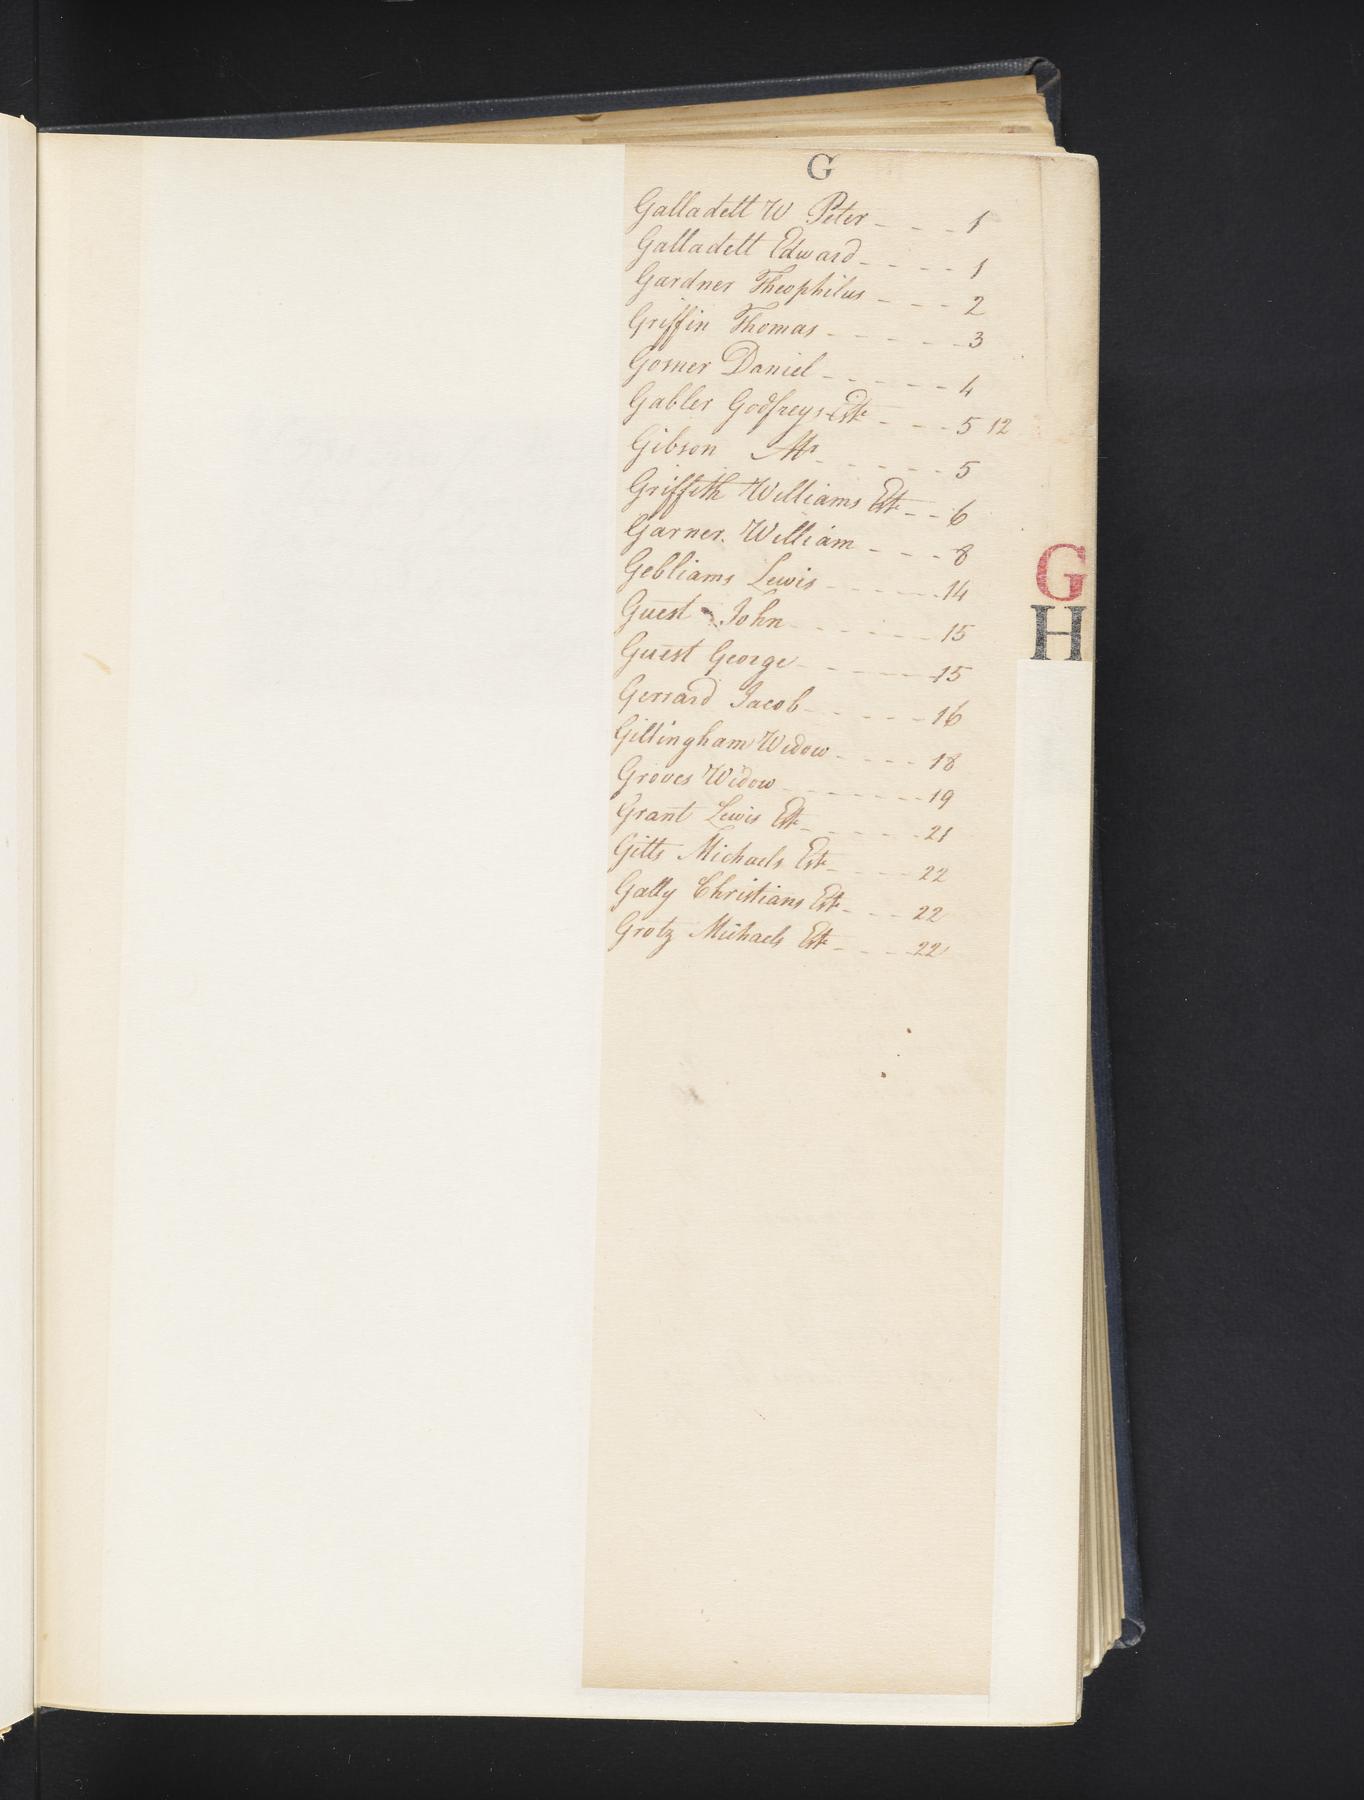 G
Galladett W Peter - - - 1
Galladett Edward - - - - 1
Gardner Theophilus - - - 2
Griffin Thomas - - - - - 3
Gosner Daniel - - - - - 4
Gabler Godfreys Este - - - 5 12
Gibson Mr - - - - - 5
Griffith Williams Est - - 6
Garner William - - - 8
Gebliams Lewis - - - - - 14
Guest John - - - - - 15
Guest George - - - - - 15
Gerrard Jacob - - - - - 16
Gillingham Widow - - - - 18
Groves Widow - - - - - - 19
Grant Lewis Est - - - - - 21
Gitts Michaels Est - - - - 22
Gally Christians Est - - - 22
Grotz Michaels Est - - - - 22
G
H